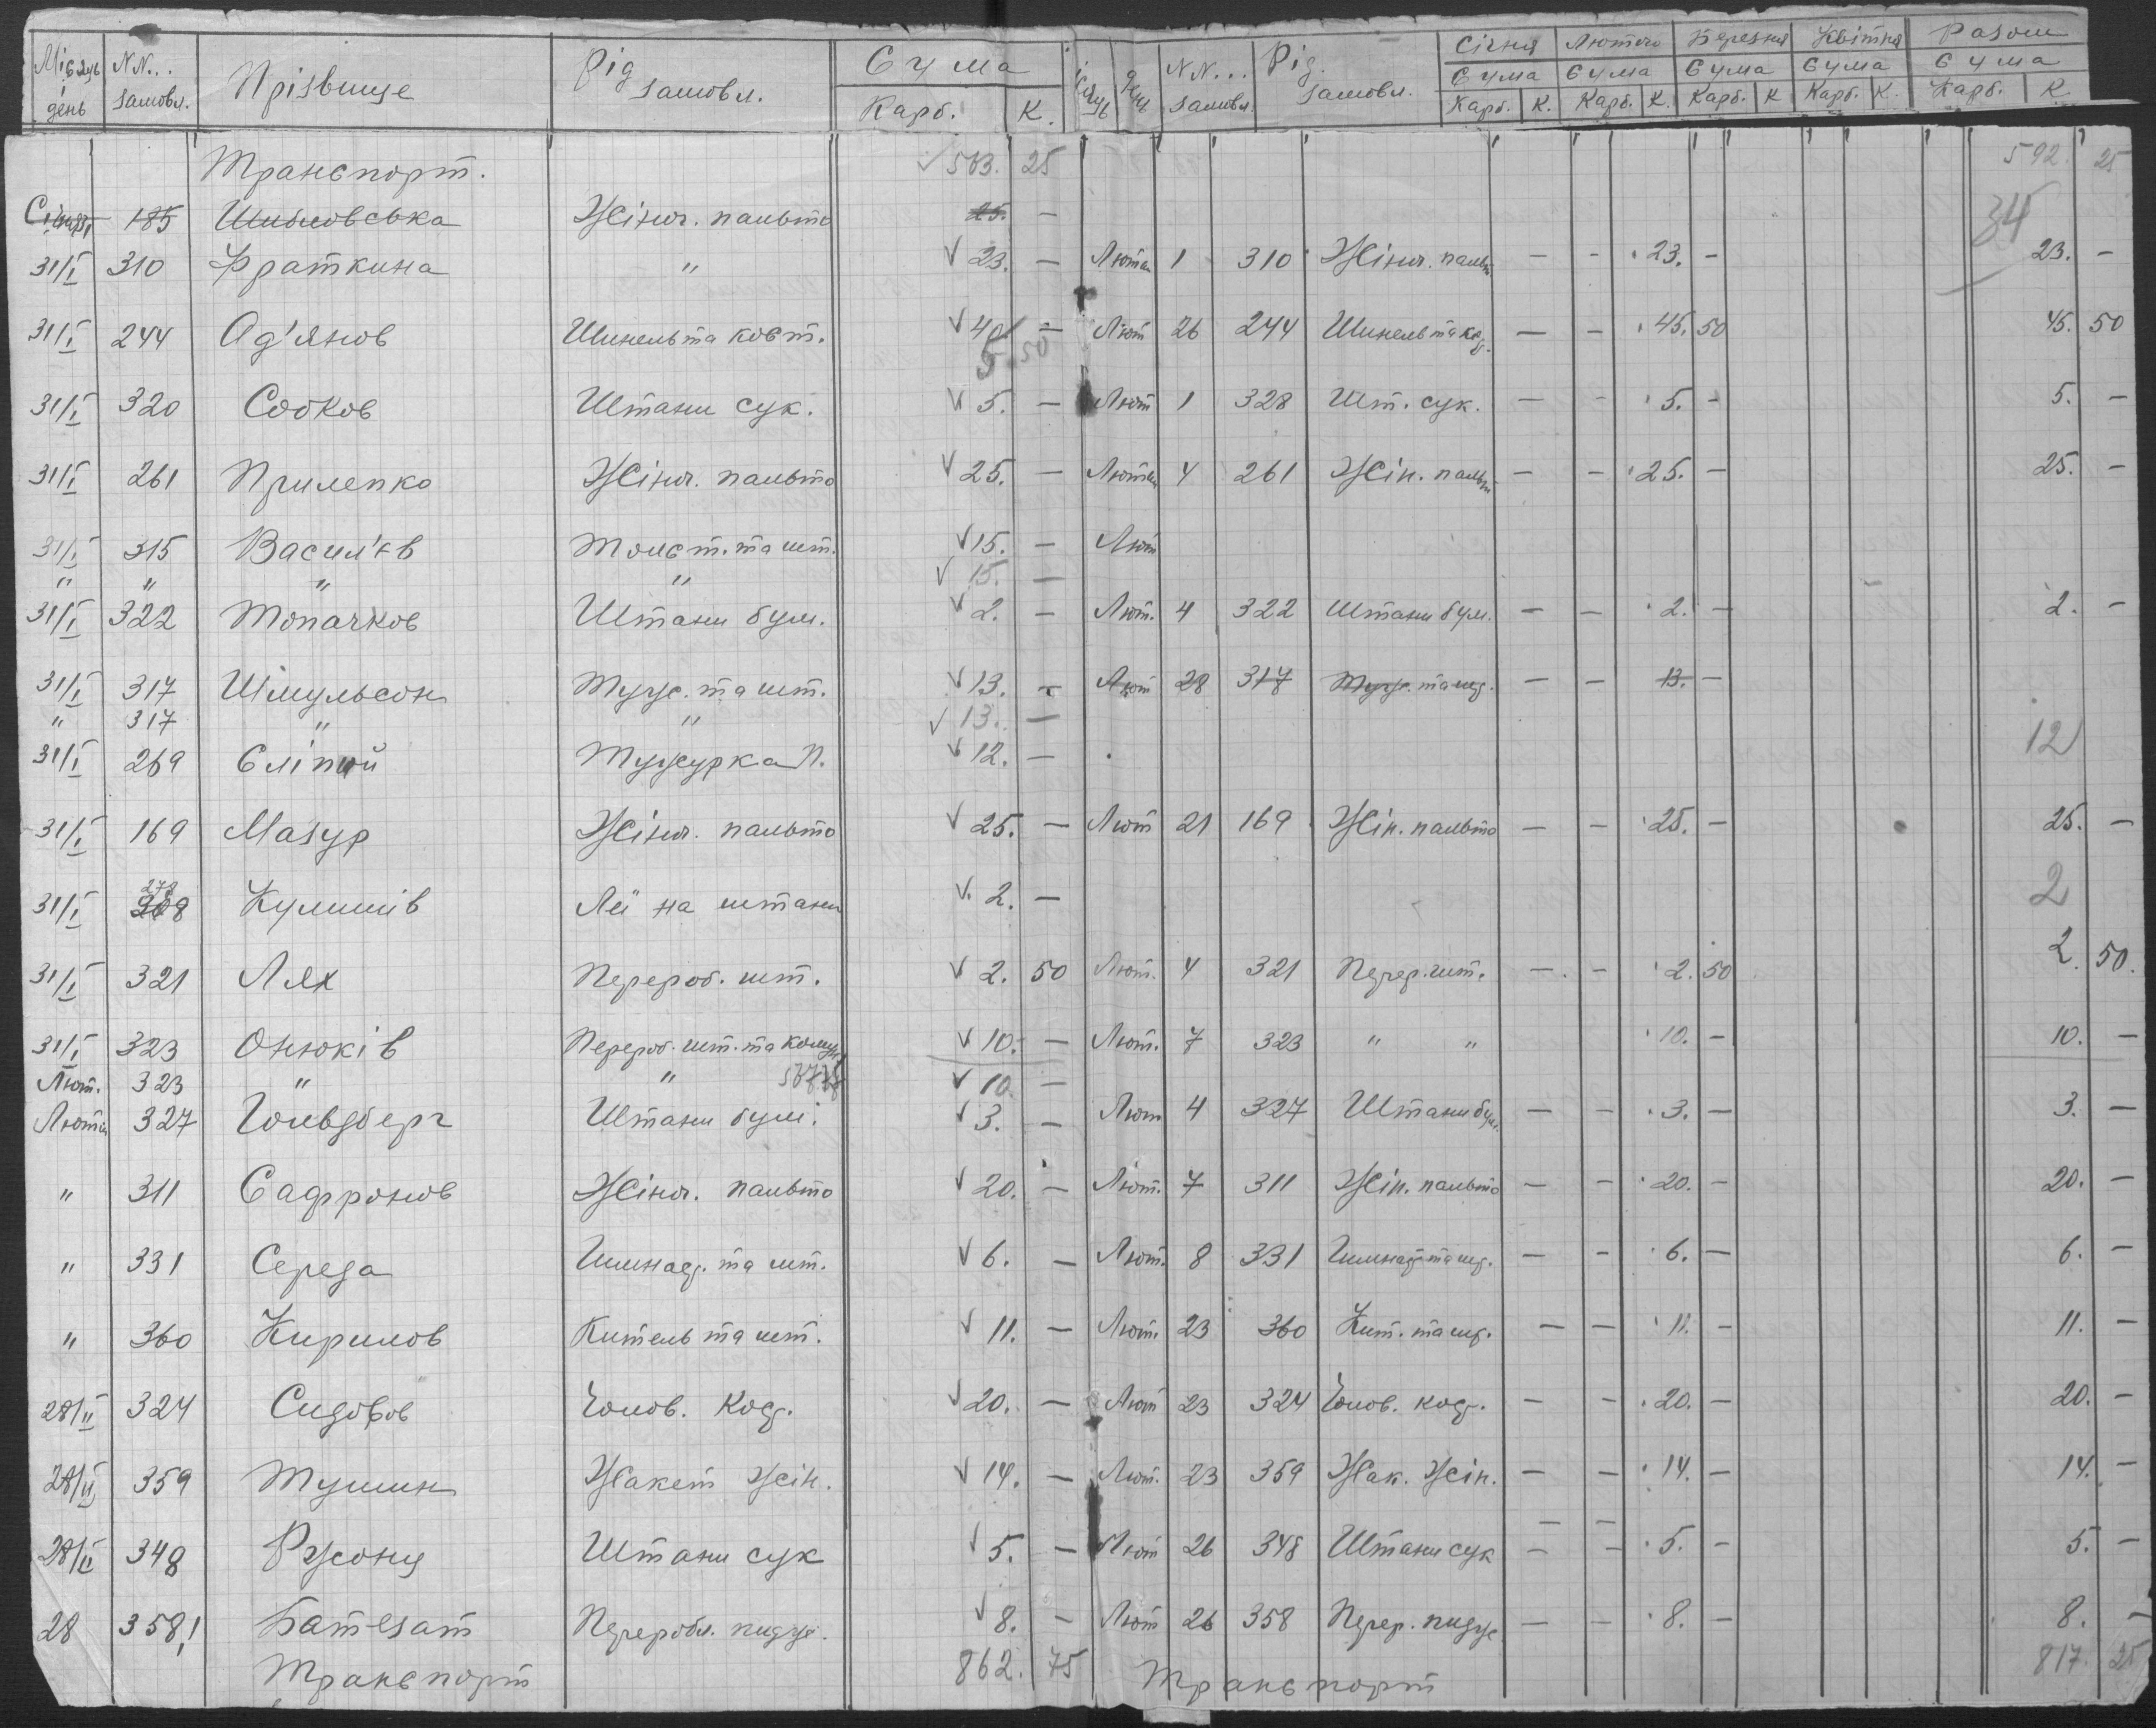 Місяць день NN... замовл. Прізвище Рід замовл. Сума Карб. К. Місяць день NN... замовл. Рід замовл. Січня Сума Карб. К. Лютого Сума Карб. К. Березня Сума Карб. К Квітня Сума Карб. К. Разом Сума Карб. К
Транспорт. 503. 25 592. 25
Січня 185 Шибловська Жіноч. пальто 25. — 34
31/I 310 Фраткина " 23. — Лютня 1 310 Жіноч. пальт — - 23. - 23. -
31/I 244 Од'янов Шинель та ковт. 40 — 5 50 Лют 26 244 Шинель та — - 45. 50 45. 50
31/I 320 Собков Штани сук. 5. — Лют 1 328 Шт. сук. — - 5. - 5. —
31/I 261 Прилепко Жіноч. пальто 25. — Лютня 4 261 Жін. пальт — - 25. — 25. —
31/I 315 Васил'єв Толст. та шт. 15. — Лют
" " " " 15. —
31/I 322 Топачков Штани бум. 2. — Лют. 4 322 Штани бум. — — 2. — 2. —
31/I 317 Шмульсон Туж. та шт. 13. - Лют 28 317 Туж. та шт. — — 13. —
" 317 " " 13. —
31/I 269 Сліпий Тужурка П. 12. — 12
31/I 169 Мазур Жіноч. пальто 25. — Лют 21 169 Жін. пальто — — 25. — 25. —
31/I 272 Кулишів Леї на штани 2. — 2
31/I 321 Лях Перероб. шт. 2. 50 Лют. 4 321 Перер. шт. — - 2. 50 2. 50.
31/I 323 Онюків Перероб. шт. та 10. — Лют. 7 323 " " 10. — 10. —
Лют. 323 " " 10 —
Лютня 327 Гольдберг Штани бум. 3. — Лют 4 327 Штани бум. — — 3. — 3. —
" 311 Сафронов Жіноч. пальто 20. — Лют. 7 311 Жін. пальто — — 20. — 20. —
" 331 Середа Гимнаст. та шт. 6. — Лют. 8 331 Гимнаст та шт. — - 6. — 6. —
" 360 Кирилов Китель та шт. 11. — Лют. 23 360 Кит. та шт. — — 11. - 11. —
28/II 324 Сидоров Чолов. кост. 20. — Лют 23 324 Чолов. кост. — - 20. — 20. —
28/II 359 Тушин Жакет жін. 14. — Лют. 23 359 Жак. жін. — — 14. — 14. —
28/II 348 Штани сук 5. — Лют 26 348 Штани сук — - 5. - 5. —
28 358! Переробл. пидж. 8. — Лют 26 358 Перер. пидж — — 8. — 8. —
Транспорт 862. 75 Транспорт 817. 25